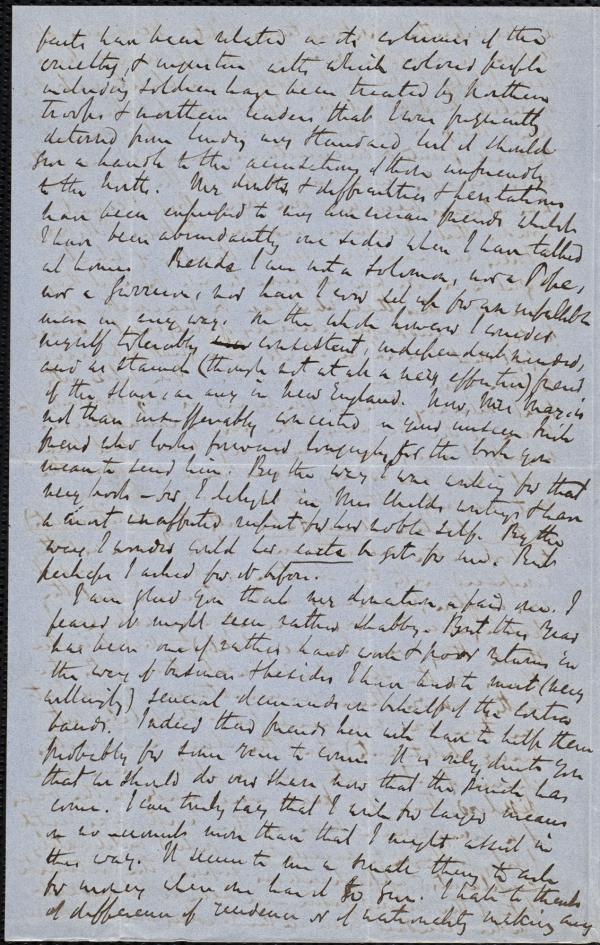 facts have been related in its columns of the
cruelty & injustice with which colored people
including soldiers have been treated by Northern
troops & northern leaders that I was frequently
deterred from lending my Standard lest it should
give a handle to the accusations of those unfriendly
to the North. My doubts & difficulties & hesitations
have been expressed to my American friends while
I have been abundantly one sided when I have talked
at home. Beside I am not a Solomon, nor a Pope,
nor a Garrison, nor have I ever set up for an infallible
man in any way. On the whole however I consider
myself tolerably consistent, independent minded,
and as staunch (though not at all a very effective) friend
of the slave, as any in New England. Now, Mr May, is
not that insufferably conceited in your unseen Irish
friend who looks forward longingly for the book you
mean to send him. By the way I was wishing for that
very book – for I delight in Mrs Childs writings & have
a most unaffected respect for her noble self. By the
way I wonder could her carte be got for me. But
perhaps I asked for it before.
I am glad you think my donation a fair one. I
feared it might seem rather shabby. But this year
has been one of rather hard work & poor returns in
the way of business & besides I have had to meet (very
willingly) several demands on behalf of the contra
bands. Indeed their friends here will have to help them
probably for some years to come. It is only due to you
that we should do our share now that the pinch has
come. I can truly say that I wish for larger means
on no account more than that I might assist in
this way. It seems to me a small thing to ask
for money when one has it to give. I hate to think
of difference of residence or of nationality making any